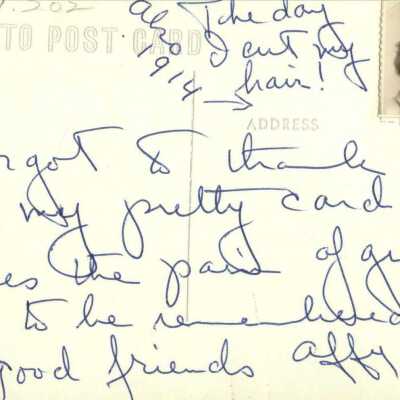 .202
TO POST CARD
Also The day
1914 → I cut my
hair!
ADDRESS
rgot to thank
my pretty card
es the pain of
to be remembered
good friends affy